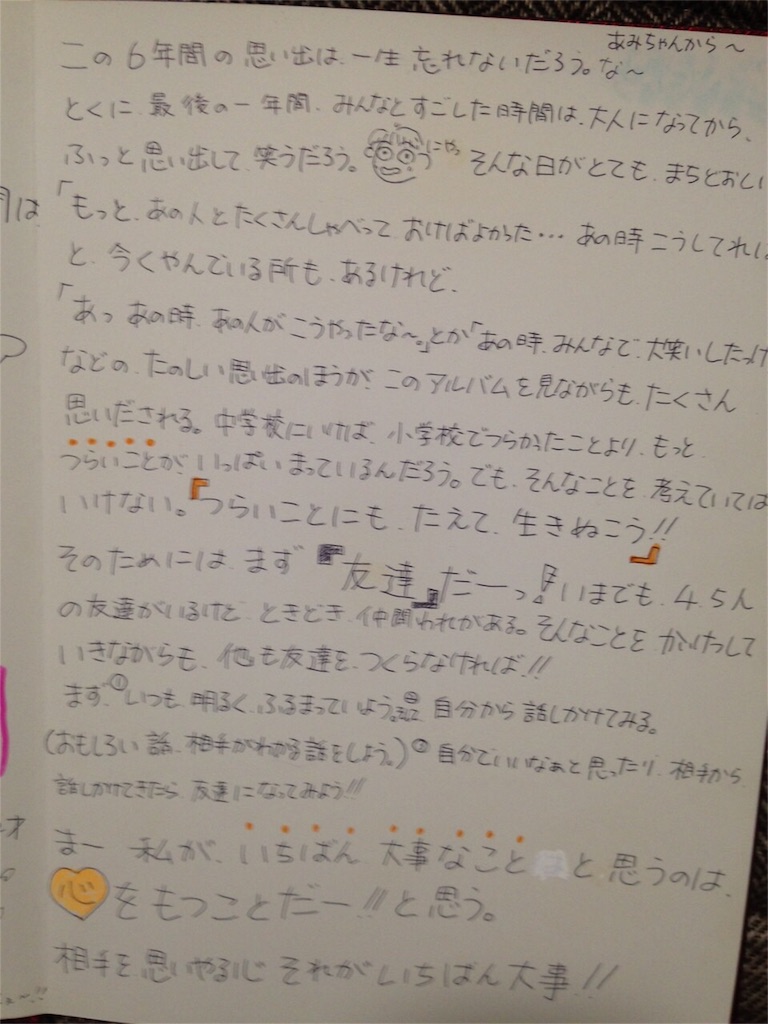 あみちゃんから〜
この6年間の思い出は、一生忘れないだろう。な〜
とくに、最後の一年間、みんなとすごした時間は、大人になってから、
ふっと思い出して、笑うだろう。 にやっ そんな日がとても、まちどおしい
「もっと、あの人とたくさんしゃべって、おけばよかった・・・あの時こうしてれば
と、今くやんでいる所も、あるけれど、
「あっ あの時、あの人がこうやったな〜。」とか「あの時、みんなで、大笑いしたっけ
などの、たのしい思い出のほうが、このアルバムを見ながらも、たくさん
思いだされる。中学校にいけば、小学校でつらかったことより、もっと、
つらいことが、いっぱいまっているんだろう。でも、そんなことを、考えていては
いけない。『つらいことにも、たえて、生きぬこう!!』
そのためには、まず『友達』だーっ!いまでも、4、5人
の友達がいるけど、ときどき、仲間われがある。そんなことを、かいけつして
いきながらも、他も友達を、つくらなければ!!
まず、①いつも、明るく、ふるまっていよう。 自分から話しかけてみる。
(おもしろい話、相手がわかる話をしよう。)②自分でいいなぁと思ったり、相手から
話しかけてきたら友達になってみよう!!!
まー 私が、いちばん大事なこと と思うのは、
心をもつことだー!!と思う。
相手を思いやる心それがいちばん大事!!
月は